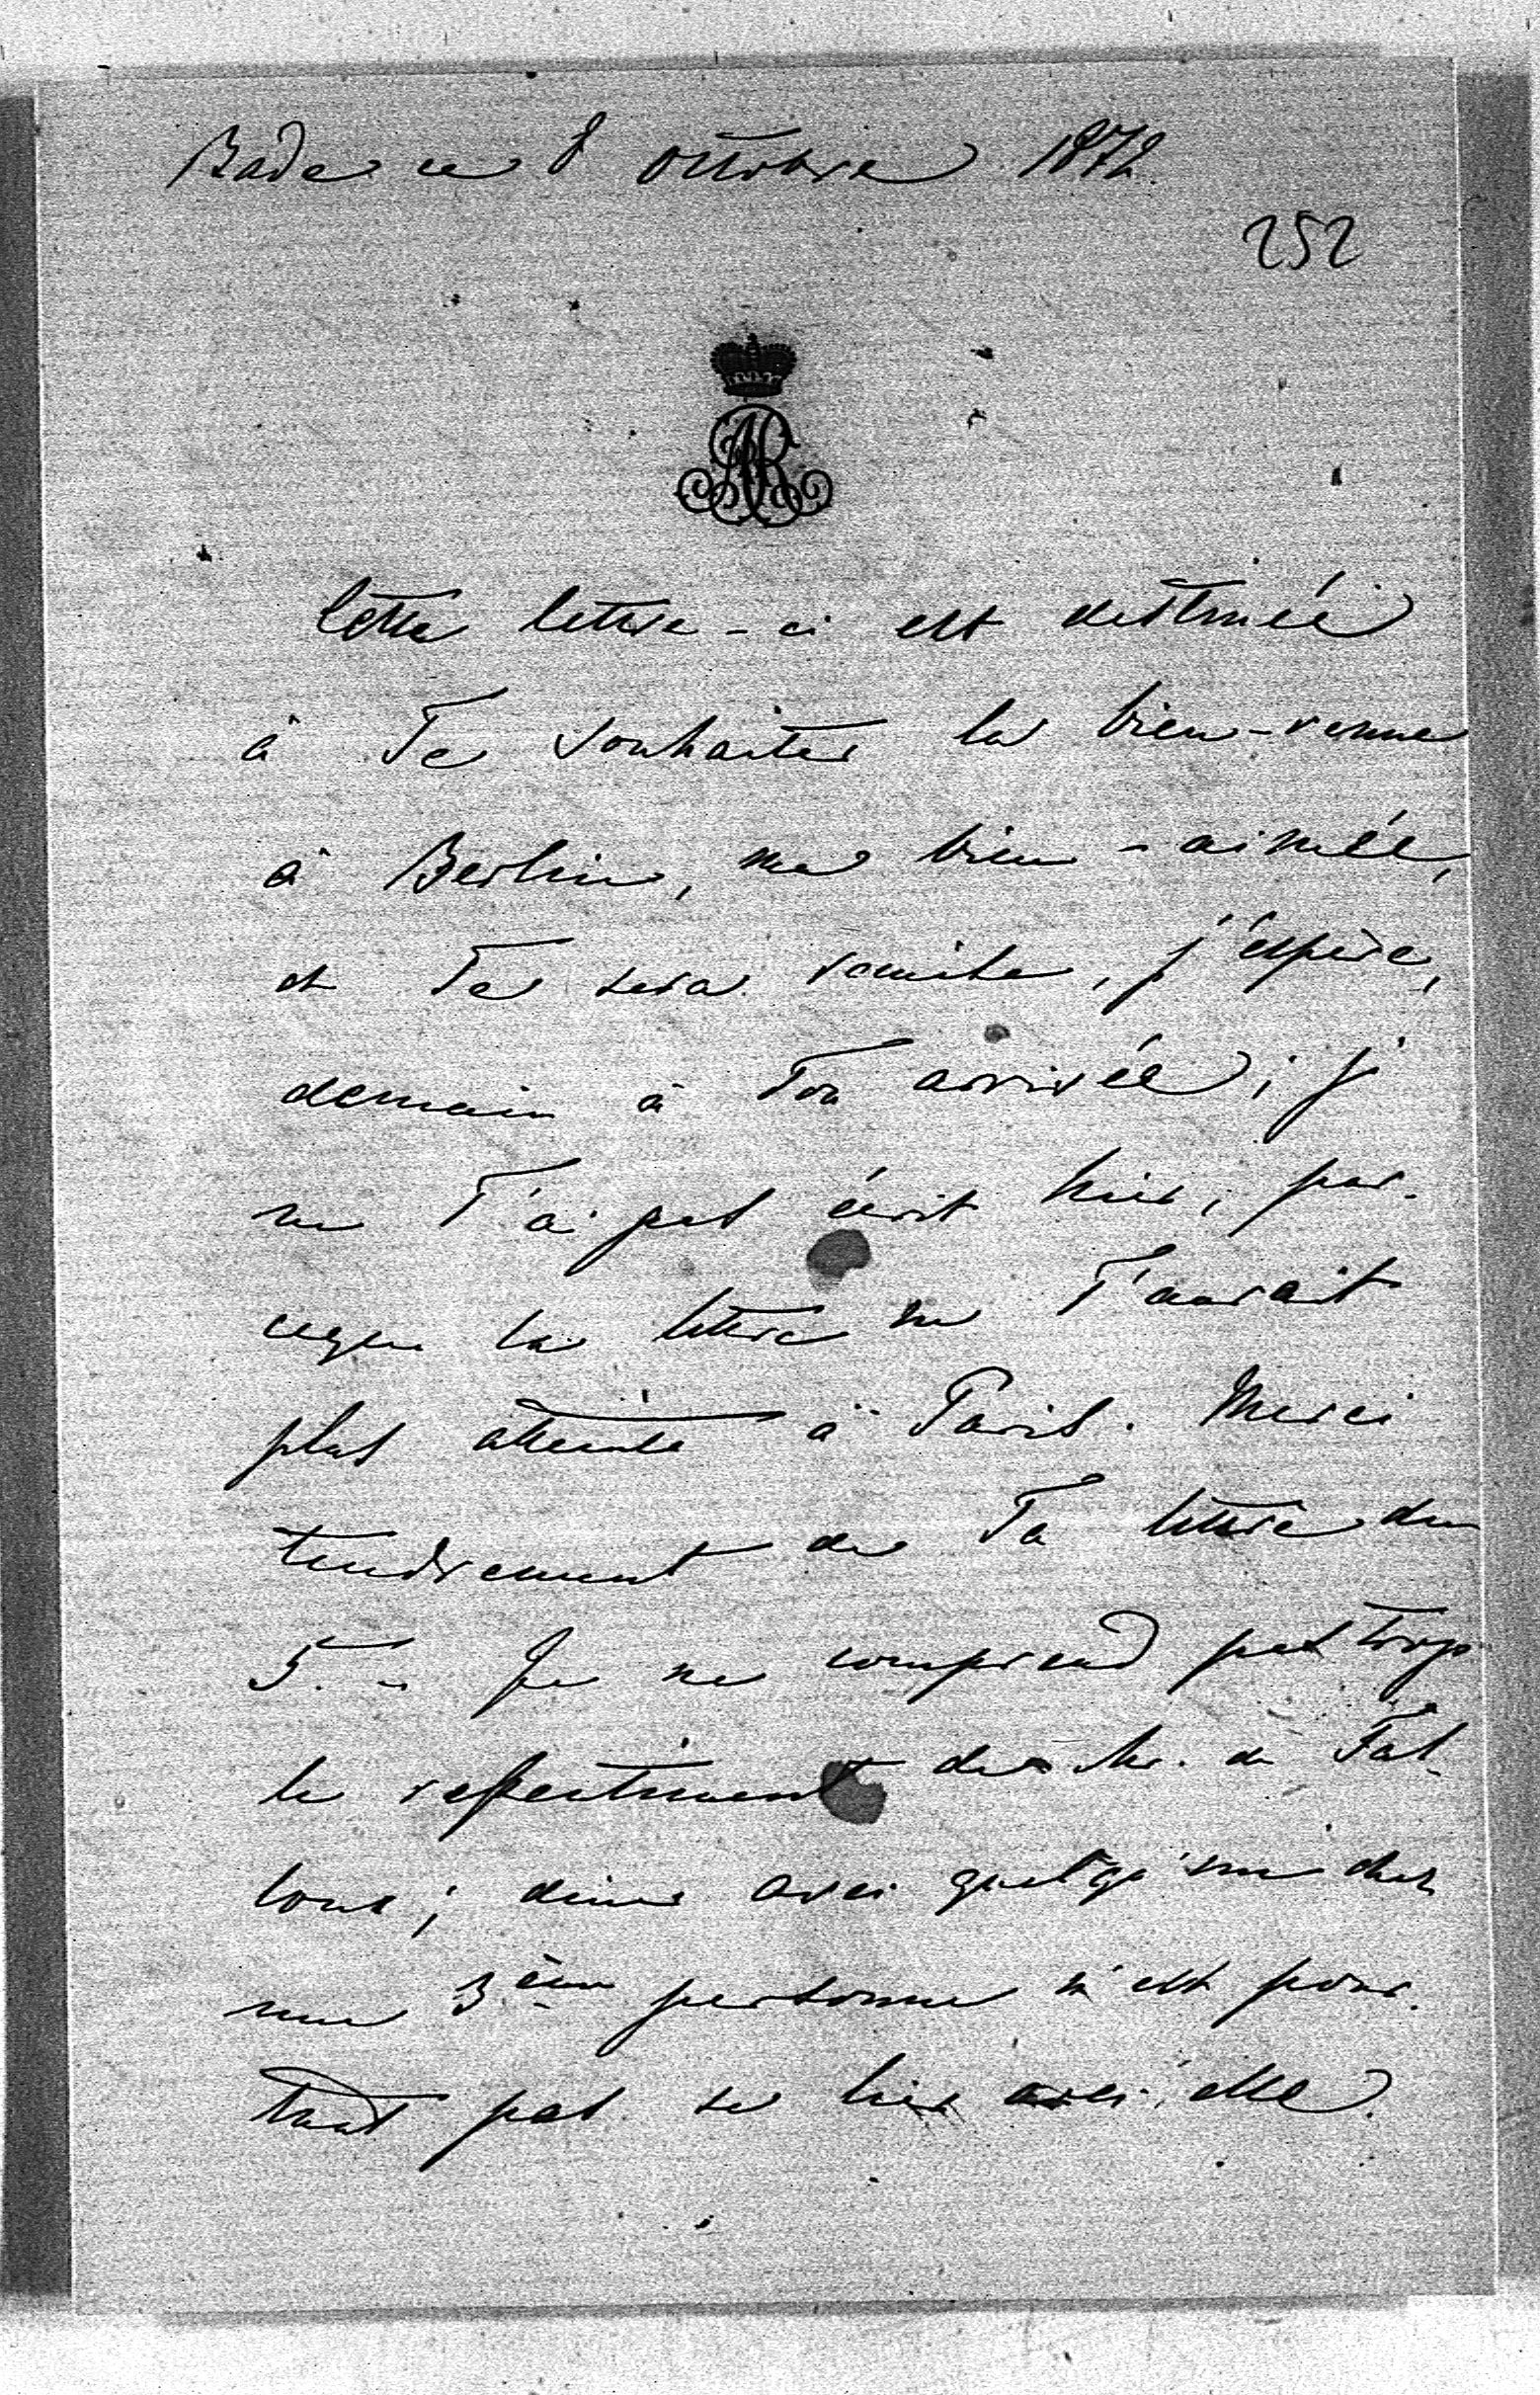 Bade ce 8 octobre 1872.
252
AR
Cette lettre-ci est destinée
à Te souhaiter la bien-venue
à Berlin, ma bien-aimée,
et Te sera remise, j'espère,
demain à Ton arrivée; j'
ne T'ai pas écrit hier, par-
ceque la lettre ne T'aurait
plus atteinte à Paris. Merci
tendrement de Ta lettre du
5. – Je ne comprend pas trop
le ressentiment de Mr. de Fal-
loux; diner avec quelqu'un chez
une 3ème personne n'est pour-
tant pas se lier avec elle.